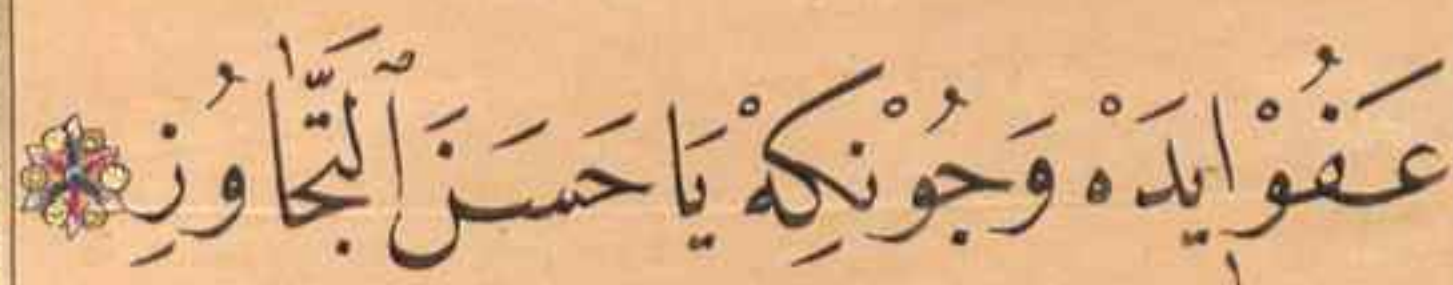 عَفُوْ ايدَهْ وَجُوْنكِهْ يَا حَسَنَ ٱلتَّجَاوُزِ